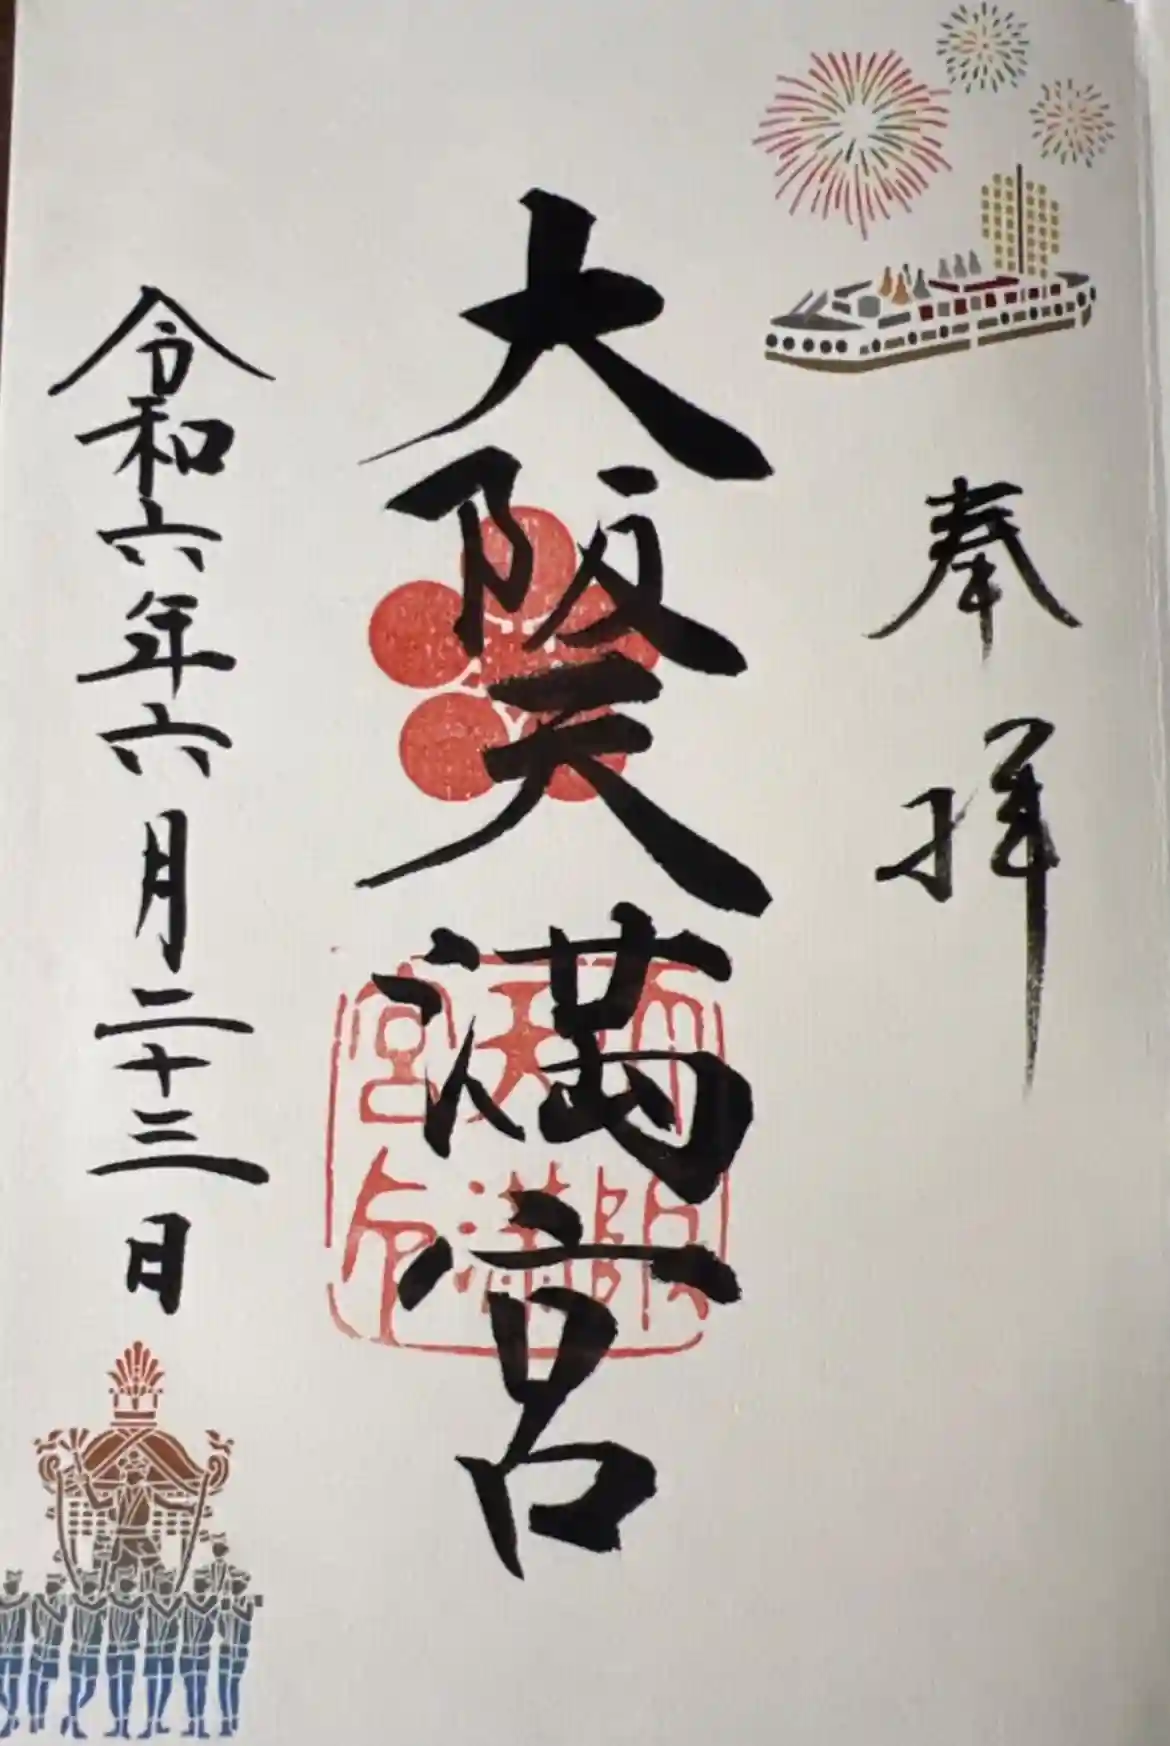 奉拝
大阪天満宮
令和六年六月二十三日
大阪天満宮印